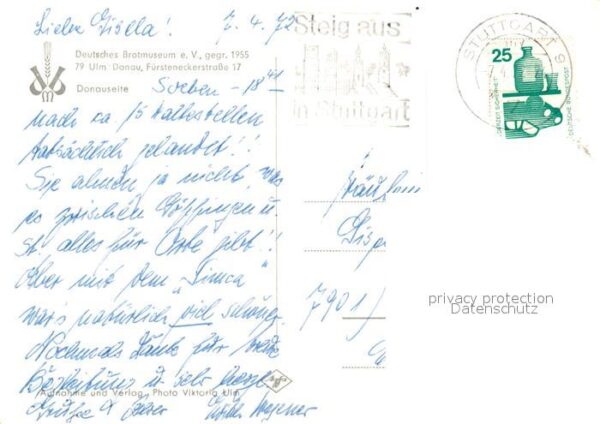 Liebe Gisela! 7.4.72
Deutsches Brotmuseum e. V., gegr. 1955
79 Ulm Donau, Fürsteneckerstraße 17
Donauseite
Soeben - 18 41
nach ca 15 Haltestellen
tatsächlich gelandet!!
Sie ahnen ja nicht, was
es zwischen Göppingen u.
St. alles für Orte gibt!!
Aber mit dem "Simca"
war's natürlich viel schöner.
Nochmals Dank für
Begleitung u. sehr herzl.
Grüße
Aufnahme und Verlag, Photo Viktoria Ulm
Steig aus
in Stuttgart
STUTTGART 9
25
DEUTSCHE BUNDESPOST
Fräulein
7901
privacy protection
Datenschutz